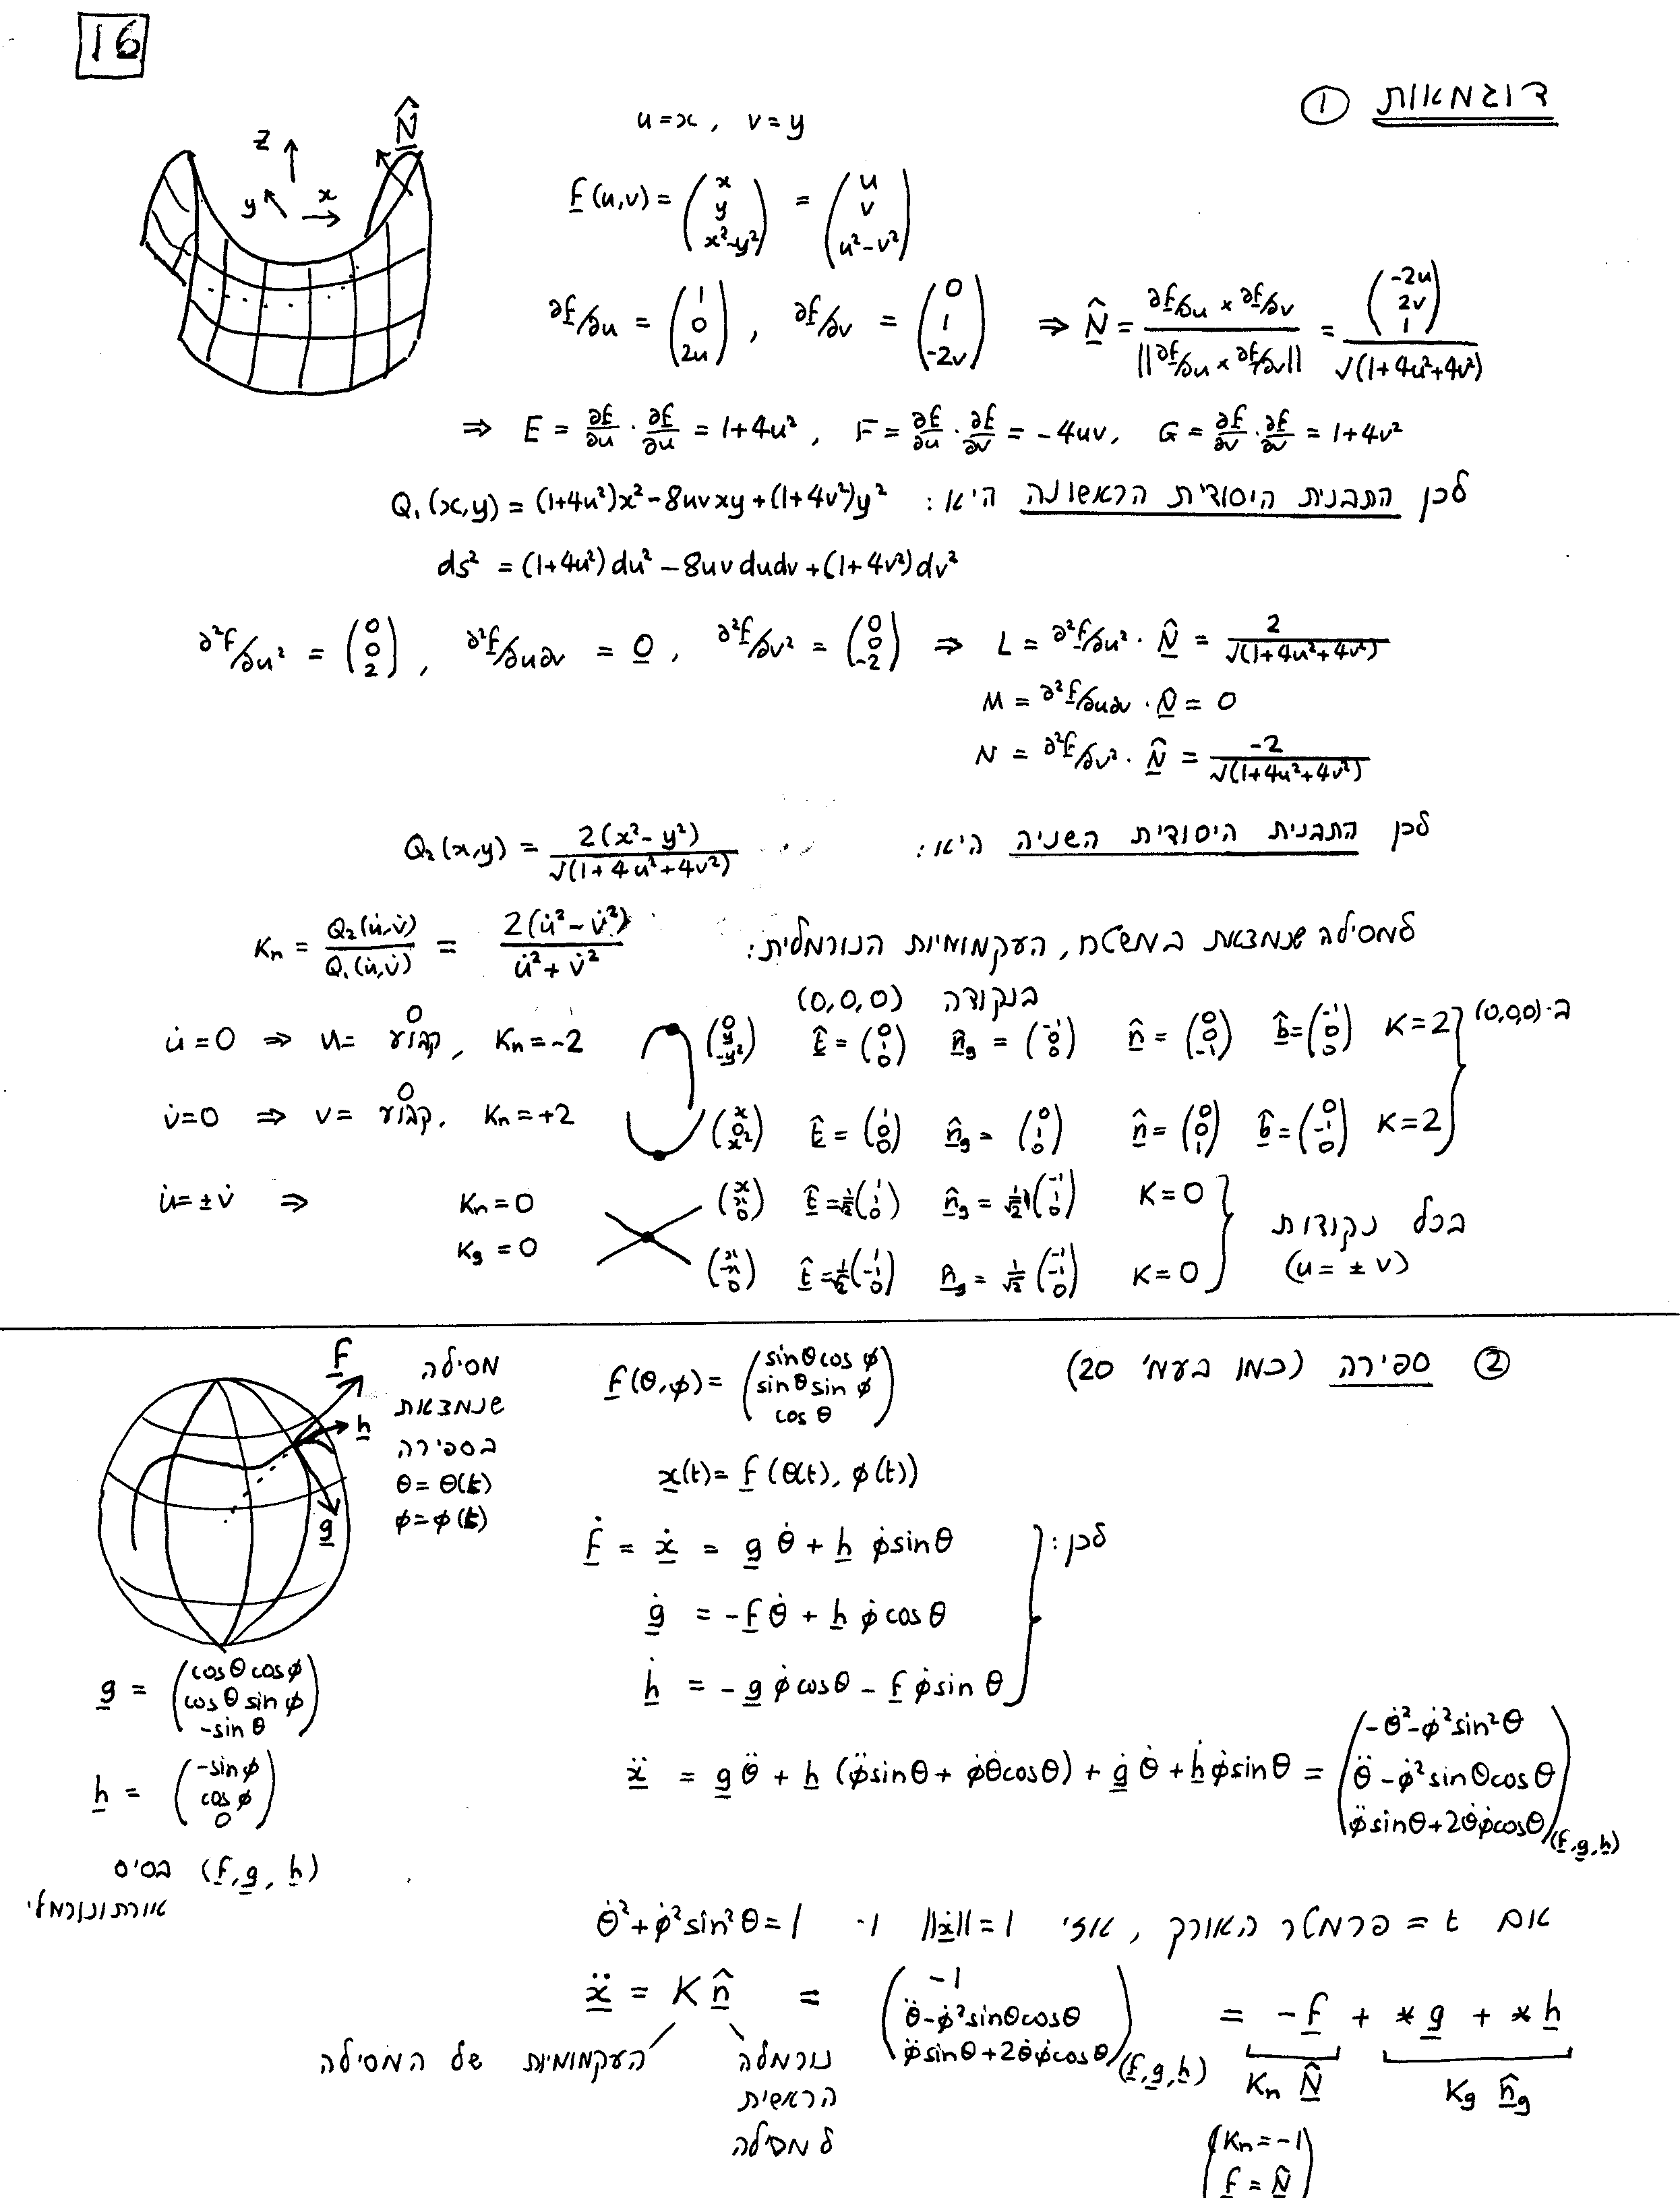 16
דוגמאות ①
z y x N̂
u=x, v=y
f(u,v) = (x, y, x²-y²) = (u, v, u²-v²)
∂f/∂u = (1, 0, 2u), ∂f/∂v = (0, 1, -2v) ⇒ N̂ = (∂f/∂u × ∂f/∂v)/||∂f/∂u × ∂f/∂v|| = (-2u, 2v, 1)/√(1+4u²+4v²)
⇒ E = ∂f/∂u · ∂f/∂u = 1+4u², F = ∂f/∂u · ∂f/∂v = -4uv, G = ∂f/∂v · ∂f/∂v = 1+4v²
לכן התבנית היסודית הראשונה היא: Q₁(x,y) = (1+4u²)x² - 8uvxy + (1+4v²)y²
ds² = (1+4u²)du² - 8uv dudv + (1+4v²)dv²
∂²f/∂u² = (0, 0, 2), ∂²f/∂u∂v = 0, ∂²f/∂v² = (0, 0, -2) ⇒ L = ∂²f/∂u² · N̂ = 2/√(1+4u²+4v²)
M = ∂²f/∂u∂v · N̂ = 0
N = ∂²f/∂v² · N̂ = -2/√(1+4u²+4v²)
לכן התבנית היסודית השניה היא: Q₂(x,y) = 2(x²-y²)/√(1+4u²+4v²)
למסילה שנמצאת במשטח, העקמומיות הנורמלית: Kn = Q₂(u̇,v̇)/Q₁(u̇,v̇) = 2(u̇²-v̇²)/(u̇²+v̇²)
בנקודה (0,0,0)
u̇=0 ⇒ u = קבוע 0, Kn=-2 (0, y, -y²) t̂ = (0, 1, 0) n̂g = (-1, 0, 0) n̂ = (0, 0, -1) b̂ = (-1, 0, 0) K=2 ב-(0,0,0)
v̇=0 ⇒ v = קבוע 0, Kn=+2 (x, 0, x²) t̂ = (1, 0, 0) n̂g = (0, 1, 0) n̂ = (0, 0, 1) b̂ = (0, -1, 0) K=2
u̇=±v̇ ⇒ Kn=0 (x, x, 0) t̂ = 1/√2 (1, 1, 0) n̂g = 1/√2 (-1, 1, 0) K=0
Kg=0 (x, -x, 0) t̂ = 1/√2 (1, -1, 0) n̂g = 1/√2 (-1, -1, 0) K=0
בכל נקודות
(u=±v)
② ספירה (כמו בעמ' 20)
f h g
מסילה
שנמצאת
בספירה
θ=θ(t)
φ=φ(t)
f(θ,φ) = (sinθcosφ, sinθsinφ, cosθ)
x(t) = f(θ(t), φ(t))
לכן:
ḟ = ẋ = g θ̇ + h φ̇sinθ
ġ = -f θ̇ + h φ̇cosθ
ḣ = -g φ̇cosθ - f φ̇sinθ
g = (cosθcosφ, cosθsinφ, -sinθ)
h = (-sinφ, cosφ, 0)
(f,g,h) בסיס
אורתונורמלי
ẍ = g θ̈ + h (φ̈sinθ + φ̇θ̇cosθ) + ġ θ̇ + ḣ φ̇sinθ = (-θ̇²-φ̇²sin²θ, θ̈-φ̇²sinθcosθ, φ̈sinθ+2θ̇φ̇cosθ)(f,g,h)
אם t = פרמטר האורך, אזי ||ẋ||=1 ו- θ̇²+φ̇²sin²θ=1
ẍ = K n̂ = (-1, θ̈-φ̇²sinθcosθ, φ̈sinθ+2θ̇φ̇cosθ)(f,g,h) = -f + *g + *h
Kn N̂ Kg n̂g
העקמומיות של המסילה
נורמלה
הראשית
למסילה
(Kn=-1
f=N̂)